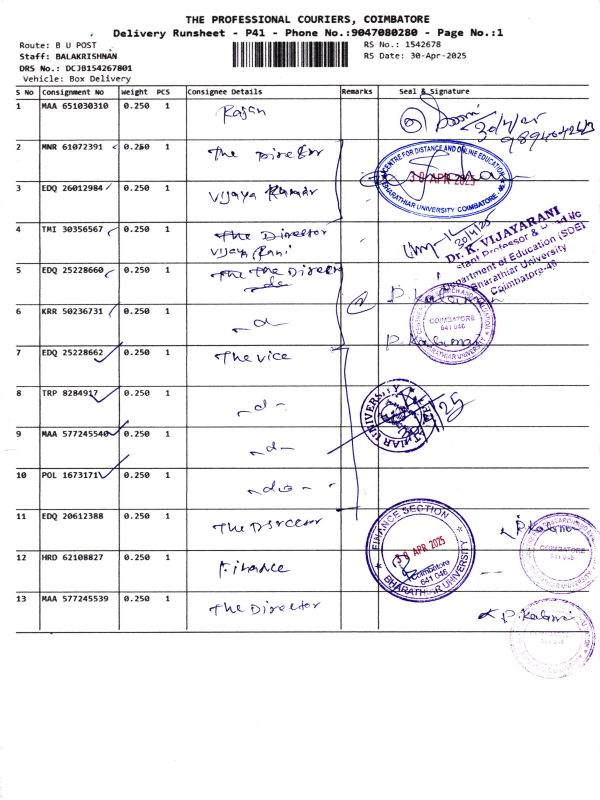 THE PROFESSIONAL COURIERS, COIMBATORE
Delivery Runsheet - P41 - Phone No.:9047080280 - Page No.:1
Route: B U POST
RS No.: 1542678
Staff: BALAKRISHNAN
RS Date: 30-Apr-2025
DRS No.: DCJB154267801
Vehicle: Box Delivery
S No Consignment No Weight PCS Consignee Details Remarks Seal & Signature
1 MAA 651030310 0.250 1 Rajan
30/4/25
2 MNR 61072391 0.250 1 The Director
CENTRE FOR DISTANCE AND ONLINE EDUCATION
30 APR 2025
BHARATHIAR UNIVERSITY COIMBATORE - 46
3 EDQ 26012984 0.250 1 Vijaya Kumar
4 TMI 30356567 0.250 1 The Director
Vijaya Rani
30/4/25
Dr. K. VIJAYARANI
Department of Education (SDE)
Bharathiar University
Coimbatore-46
5 EDQ 25228660 0.250 1 The The Director
P. Kalimani
6 KRR 50236731 0.250 1 -do-
COIMBATORE
641 046
7 EDQ 25228662 0.250 1 The Vice
8 TRP 8284917 0.250 1 -do-
9 MAA 577245540 0.250 1 -do-
10 POL 1673171 0.250 1 -do-
11 EDQ 20612388 0.250 1 The Director
FINANCE SECTION
30 APR 2025
Coimbatore
641 046
BHARATHIAR UNIVERSITY
12 HRD 62108827 0.250 1 Finance
13 MAA 577245539 0.250 1 The Director